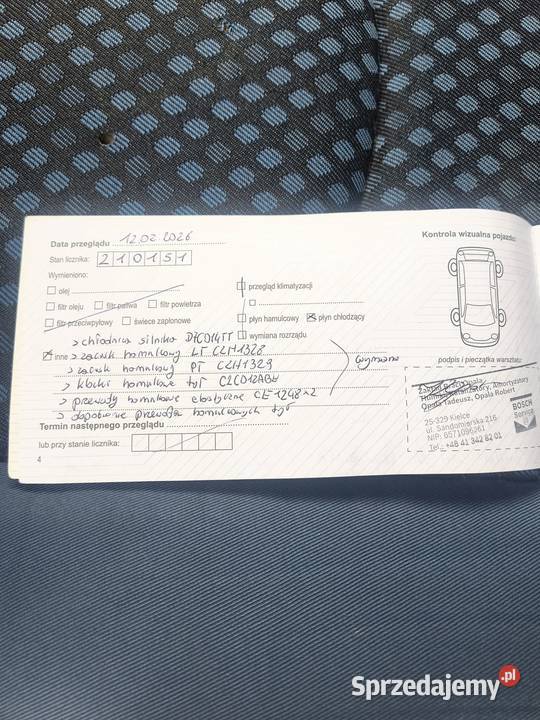 Data przeglądu 12.02.2026
Kontrola wizualna pojazdu:
Stan licznika: 210151
Wymieniono:
olej
przegląd klimatyzacji
filtr oleju filtr paliwa filtr powietrza
płyn hamulcowy płyn chłodzący
filtr przeciwpyłowy świece zapłonowe
wymiana rozrządu
> chłodnica silnika D7C014TT
inne > zacisk hamulcowy LT CZH1328
> zacisk hamulcowy PT CZH1329
> klocki hamulcowe tył C2C012ABE
> przewody hamulcowe elastyczne CE1248x2
> dopasowanie przewodów hamulcowych tył
wymiana
podpis i pieczątka warsztatu:
Zakład Pracy
Hum. Amortyzatory
Opała Tadeusz, Opała Robert
25-329 Kielce
ul. Sandomierska 216
NIP: 6571096261
Tel.: +48 41 342 82 01
BOSCH
Service
Termin następnego przeglądu
lub przy stanie licznika:
4
Sprzedajemy.pl